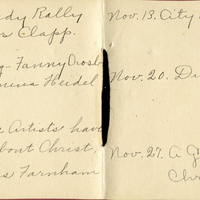 dy Rally
s Clapp.
g-Fanny Crosb
mina Heidel
e Artists have
bout Christ,
s Farnham
Nov. 13. City
Nov. 20. Di
Nov. 27. A G
Chr